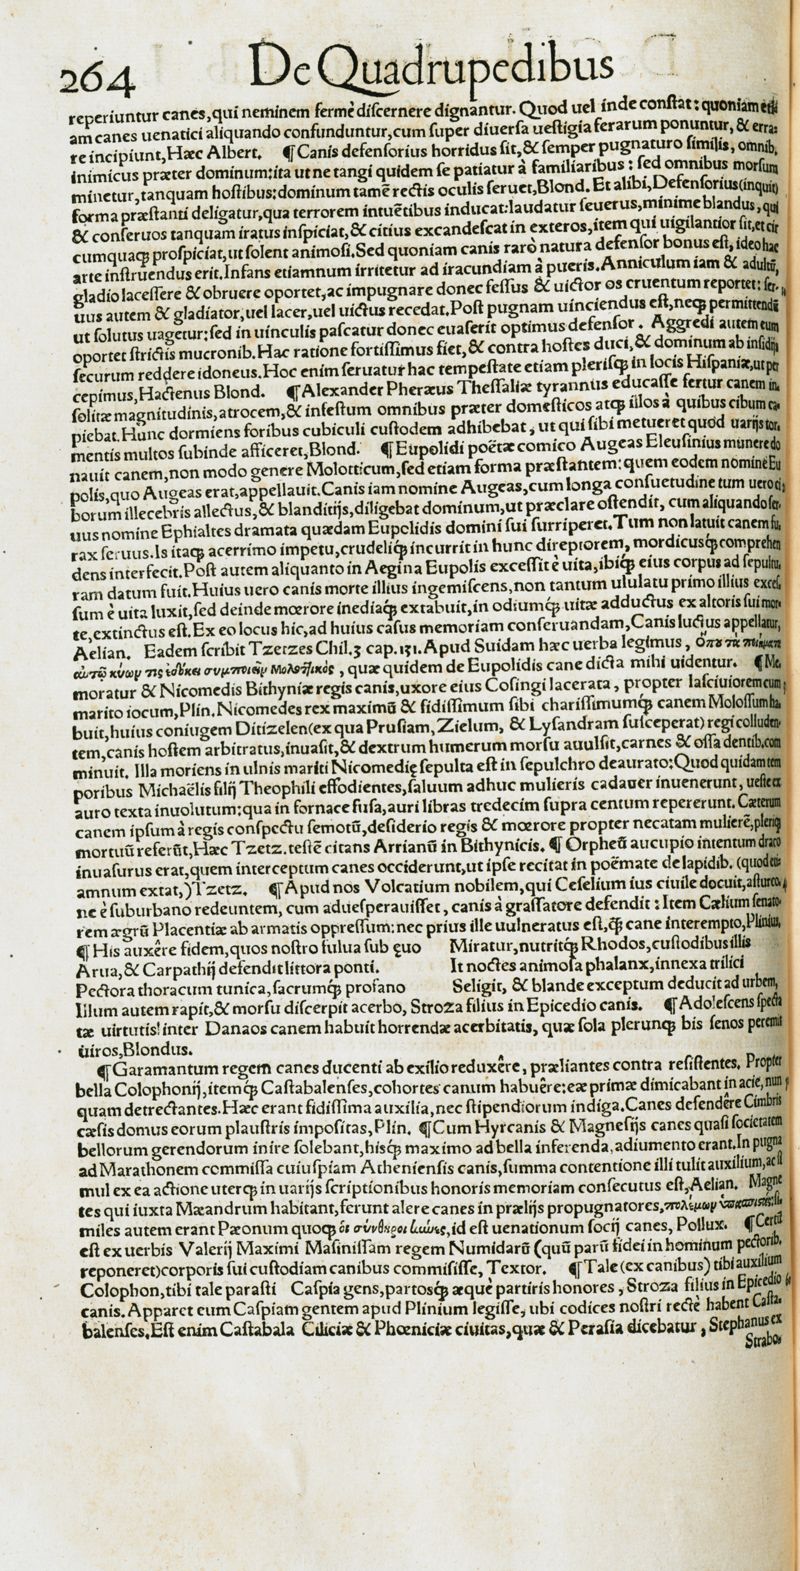 264 De Quadrupedibus
reperiuntur canes, qui neminem fermè discernere dignantur. Quod uel inde constat: quoniam eti
am canes uenatici aliquando confunduntur, cum super diuersa uestigia ferarum ponuntur, & erra-
re incipiunt, Hæc Albert. ¶ Canis defensorius horridus sit, & semper pugnaturo similis, omnib.
inimicus præter dominum: ita ut ne tangi quidem se patiatur à familiaribus: sed omnibus morsum
minetur, tanquam hostibus: dominum tamẽ rectis oculis seruet, Blond. Et alibi, Defensorius (inquit)
forma præstanti deligatur, qua terrorem intuẽtibus inducat: laudatur seuerus, minime blandus, qui
& conseruos tanquam iratus inspiciat, & citius excandescat in exteros, item qui uigilantior sit, et cir
cumquaq; prospiciat, ut solent animosi. Sed quoniam canis rarò natura defensor bonus est, ideo hac
arte instruendus erit. Infans etiamnum irritetur ad iracundiam à pueris. Anniculum iam & adultũ,
gladio lacessere & obruere oportet, ac impugnare donec fessus & uictor os cruentum reportet: ser-
uus autem & gladiator, uel lacer, uel uictus recedat. Post pugnam uinciendus est, neq; permittendũ
ut solutus uagetur: sed in uinculis pascatur donec euaserit optimus defensor. Aggredi autem eum
oportet strictis mucronib. Hac ratione fortissimus fiet, & contra hostes duci, & dominum ab insidijs
securum reddere idoneus. Hoc enim seruatur hac tempestate etiam plerisq; in locis Hispaniæ, ut per
cepimus, Hactenus Blond. ¶ Alexander Pheræus Thessaliæ tyrannus educasse fertur canem in-
solitæ magnitudinis, atrocem, & infestum omnibus præter domesticos atq; illos à quibus cibum ca-
piebat. Hunc dormiens foribus cubiculi custodem adhibebat, ut qui sibi metueret quòd uarijs tor-
mentis multos subinde afficeret, Blond. ¶ Eupolidi poëtæ comico Augeas Eleusinius munere do
nauit canem, non modo genere Molotticum, sed etiam forma præstantem: quem eodem nomine Eu
polis, quo Augeas erat, appellauit. Canis iam nomine Augeas, cum longa consuetudine tum uero ci
borum illecebris allectus, & blanditijs, diligebat dominum, ut præclare ostendit, cum aliquando ser-
uus nomine Ephialtes dramata quædam Eupolidis domini sui surriperet. Tum non latuit canem fu-
rax seruus. Is itaq; acerrimo impetu, crudeliq; incurrit in hunc direptorem, mordicusq; comprehen
dens interfecit. Post autem aliquanto in Aegina Eupolis excessit è uita, ibiq; eius corpus ad sepultu-
ram datum fuit. Huius uero canis morte illius ingemiscens, non tantum ululatu primo illius exces-
sum è uita luxit, sed deinde mœrore inediaq; extabuit, in odiumq; uitæ adductus ex altoris sui mor-
te, extinctus est. Ex eo locus hic, ad huius casus memoriam conseruandam, Canis luctus appellatur,
Aelian. Eadem scribit Tzetzes Chil. 3 cap. 131. Apud Suidam hæc uerba legimus,
quæ quidem de Eupolidis cane dicta mihi uidentur. ¶ Me-
moratur & Nicomedis Bithyniæ regis canis, uxore eius Cosingi lacerata, propter lasciuiorem cum
marito iocum, Plin. Nicomedes rex maximũ & fidissimum sibi charissimumq; canem Molossum ha-
buit, huius coniugem Ditizelen (ex qua Prusiam, Zielum, & Lysandram susceperat) regi colluden-
tem, canis hostem arbitratus, inuasit, & dextrum humerum morsu auulsit, carnes & ossa dentib. com
minuit. Illa moriens in ulnis mariti Nicomedię sepulta est in sepulchro deaurato: Quod quidam tem
poribus Michaëlis filij Theophili effodientes, saluum adhuc mulieris cadauer inuenerunt, ueste ex
auro texta inuolutum: qua in fornace fusa, auri libras tredecim supra centum repererunt. Cæterum
canem ipsum à regis conspectu semotũ, desiderio regis & mœrore propter necatam mulierẽ, pleriq;
mortuũ referũt, Hæc Tzetz. testẽ citans Arrianũ in Bithynicis. ¶ Orpheũ aucupio intentum draco
inuasurus erat, quem interceptum canes occiderunt, ut ipse recitat in poëmate de lapidib. (quod etiã
amnum extat,) Tzetz. ¶ Apud nos Volcatium nobilem, qui Ceselium ius ciuile docuit, asturco-
ne è suburbano redeuntem, cum aduesperauisset, canis à grassatore defendit: Item Cælium senato-
rem ægrũ Placentiæ ab armatis oppressum: nec prius ille uulneratus est, q̃ cane interempto, Plinius.
¶ His auxêre fidem, quos nostro fulua sub ęuo Miratur, nutritq; Rhodos, custodibus illis
Arua, & Carpathij defendit littora ponti. It noctes animosa phalanx, innexa trilici
Pectora thoracum tunica, sacrumq; profano Seligit, & blande exceptum deducit ad urbem,
Illum autem rapit, & morsu discerpit acerbo, Stroza filius in Epicedio canis. ¶ Adolescens specta
tæ uirtutis inter Danaos canem habuit horrendæ acerbitatis, quæ sola plerunq; bis senos peremit
uiros, Blondus.
¶ Garamantum regem canes ducenti ab exilio reduxêre, præliantes contra resistentes. Propter
bella Colophonij, itemq; Castabalenses, cohortes canum habuêre: eæ primæ dimicabant in acie, nun
quam detrectantes. Hæc erant fidissima auxilia, nec stipendiorum indiga. Canes defendêre Cimbris
cæsis domus eorum plaustris impositas, Plin. ¶ Cum Hyrcanis & Magnesijs canes quasi societatem
bellorum gerendorum inire solebant, hisq; maximo ad bella inferenda, adiumento erant. In pugna
ad Marathonem commissa cuiuspiam Atheniensis canis, summa contentione illi tulit auxilium, ac si
mul ex ea actione uterq; in uarijs scriptionibus honoris memoriam consecutus est, Aelian. Magne
tes qui iuxta Mæandrum habitant, ferunt alere canes in prælijs propugnatores,
miles autem erant Pæonum quoq; οἱ σύνθηροι κύνες, id est uenationum socij canes, Pollux. ¶ Certũ
est ex uerbis Valerij Maximi Masinissam regem Numidarũ (quũ parũ fidei in hominum pectorib.
reponeret) corporis sui custodiam canibus commisisse, Textor. ¶ Tale (ex canibus) tibi auxilium
Colophon, tibi tale parasti Caspia gens, partosq; æquè partiris honores, Stroza filius in Epicedio
canis. Apparet eum Caspiam gentem apud Plinium legisse, ubi codices nostri rectè habent Casta-
balenses. Est enim Castabala Ciliciæ & Phœniciæ ciuitas, quæ & Perasia dicebatur, Stephanus ex
Strabo-